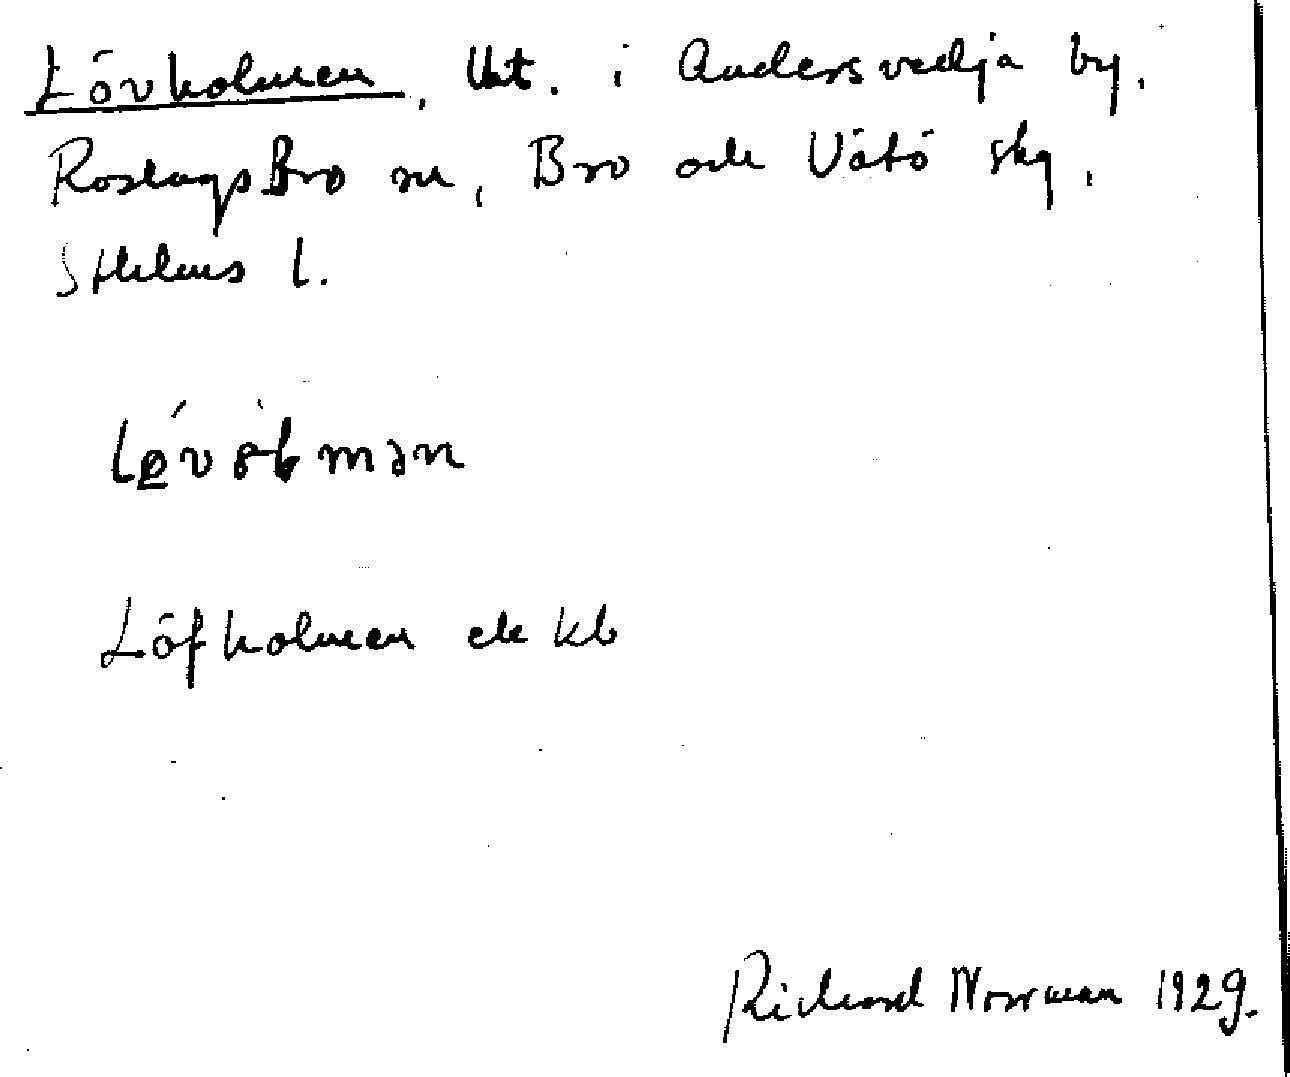 Lövholmen, Utt. i Andersvedja by.
RoslagsBro sn, Bro och Vätö skg,
Sthlms l.
Löfholmen ek kb
Richard Norrman 1929.